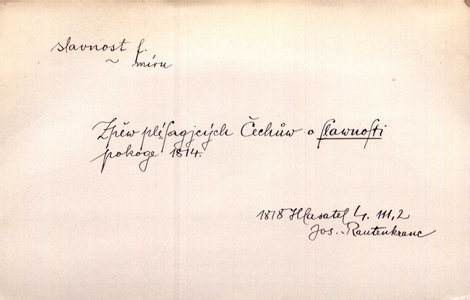 slavnost f.
~ míru
Zpěw plésagjcých Čechůw o slawnosti
pokoge 1814.
1818 Hlasatel 4. 111,2
Jos. Rautenkranc